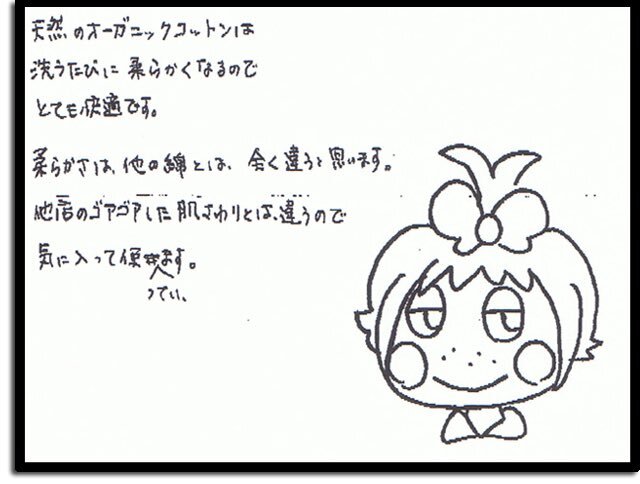 天然のオーガニックコットンは
洗うたびに柔らかくなるので
とても快適です。
柔らかさは、他の綿とは、全く違うと思います。
他店のゴアゴアした肌さわりとは、違うので
気に入って使ってい、ます。